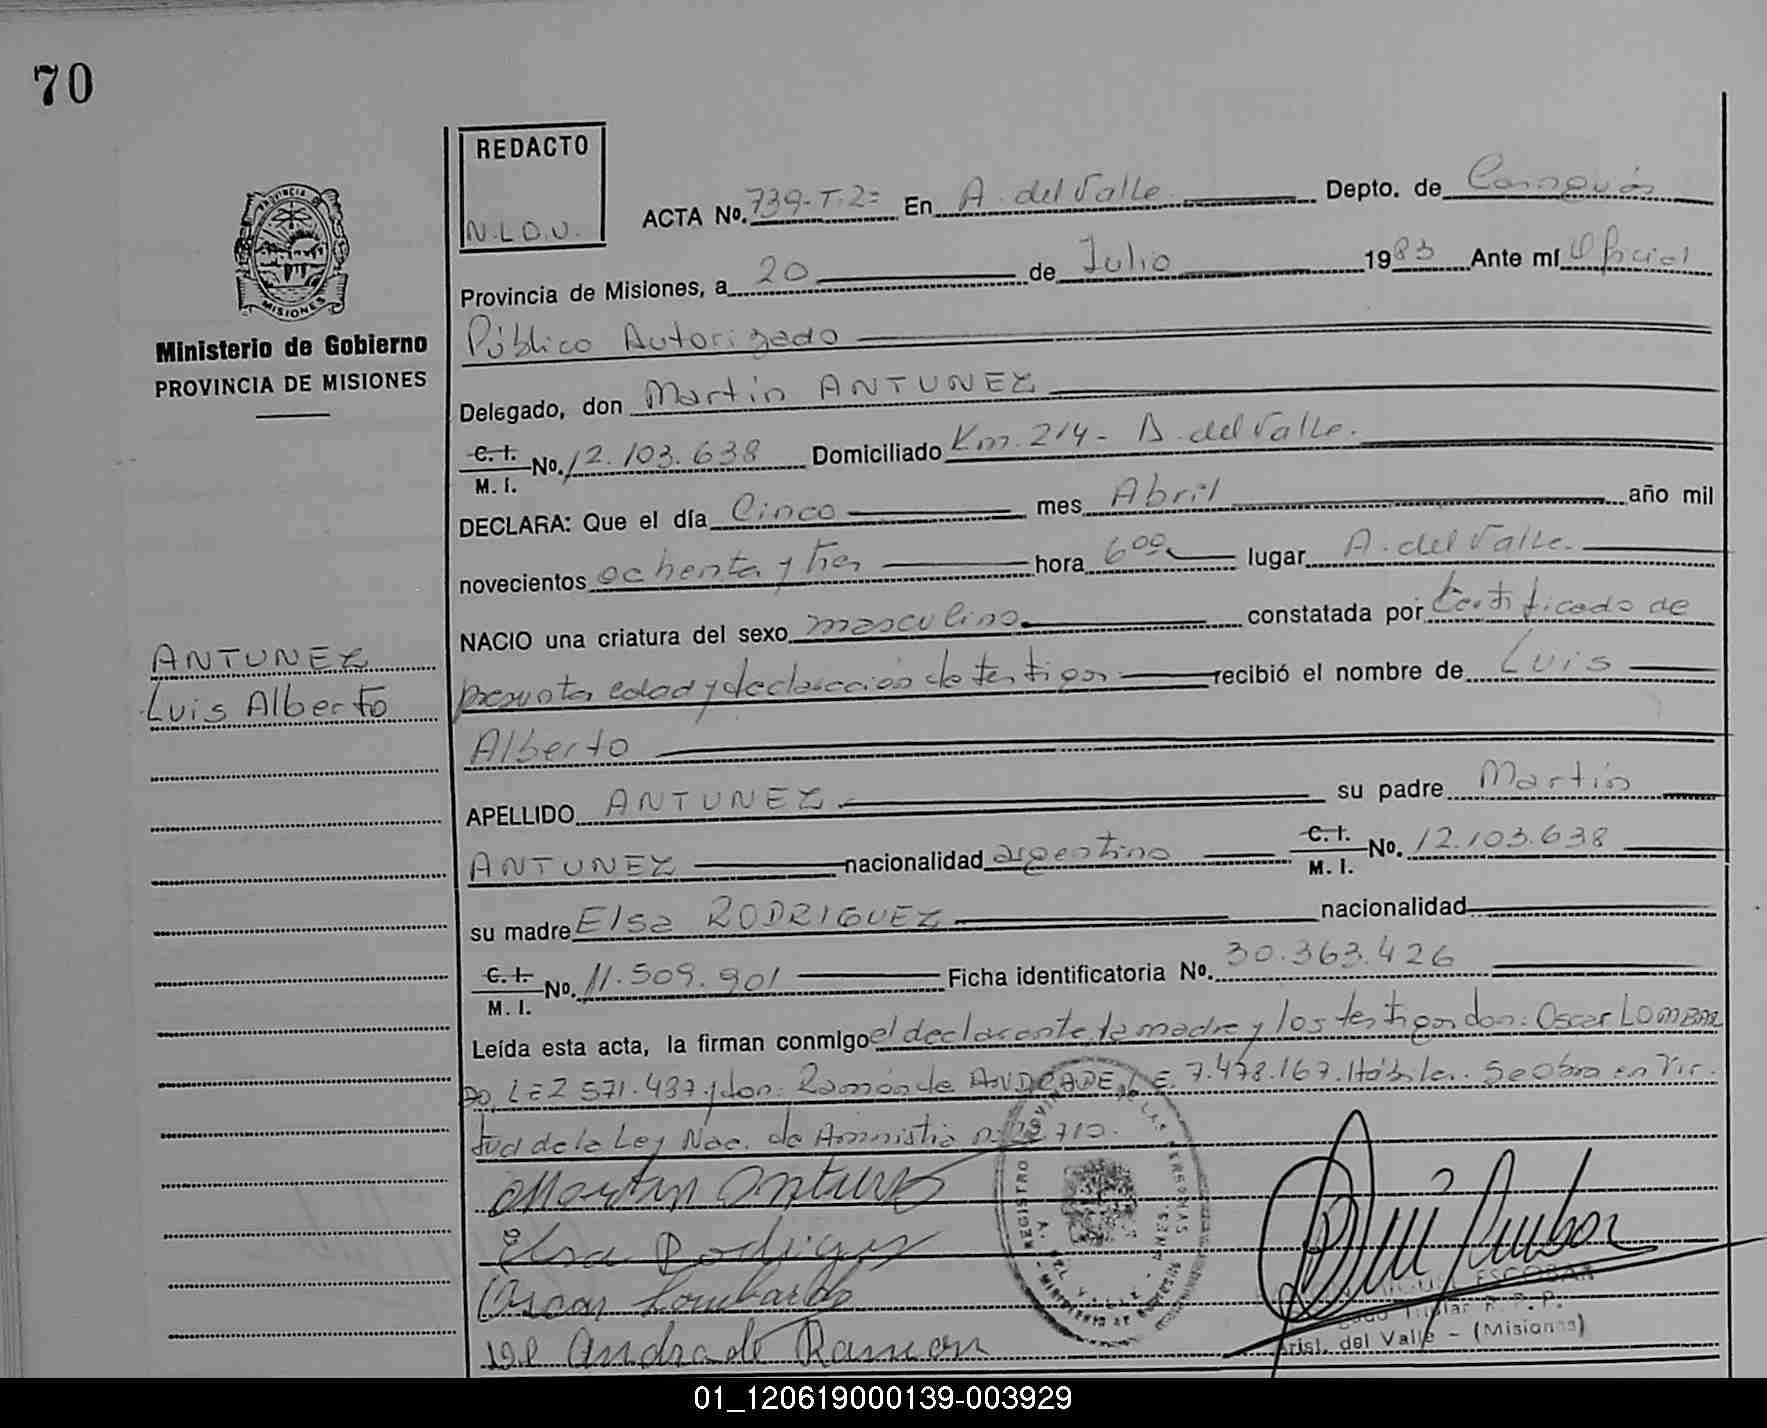 70
REDACTO
N.L.D.U.
PROVINCIA
MISIONES
Ministerio de Gobierno
PROVINCIA DE MISIONES
ACTA No. 739-T.2= En A. del Valle Depto. de
Provincia de Misiones, a 20 de Julio 1983 Ante mí Oficial
Público Autorizado
Delegado, don Martin ANTUNEZ
C. I. / M. I. No. 12.103.638 Domiciliado Km. 214 - A. del Valle.
DECLARA: Que el día Cinco mes Abril año mil
novecientos ochenta y tres hora 6:00 lugar A. del Valle.
NACIO una criatura del sexo masculino constatada por Certificado de
presunta edad y declaración de testigos recibió el nombre de Luis
Alberto
APELLIDO ANTUNEZ su padre Martin
ANTUNEZ nacionalidad argentino C. I. / M. I. No. 12.103.638
su madre Elsa RODRIGUEZ nacionalidad
C. I. / M. I. No. 11.509.901 Ficha identificatoria No. 30.363.426
Leída esta acta, la firman conmigo el declarante, la madre y los testigos don: Oscar LOMBAR
DO, LE 7 571.437 y don: Ramón de ANDRADE, L.E. 7.478.167. Hábiles. Se obra en Vir-
tud de la Ley Nac. de Amnistia n° 710.
ANTUNEZ
Luis Alberto
Martin Antunes
Elsa Rodrigues
Oscar Lombardo
de Andrade Ramon
REGISTRO PROVINCIAL DE LAS PERSONAS
A. DEL VALLE - MNES.
ESCOBAR
Titular R. P. P.
Arist. del Valle - (Misiones)
01_120619000139-003929